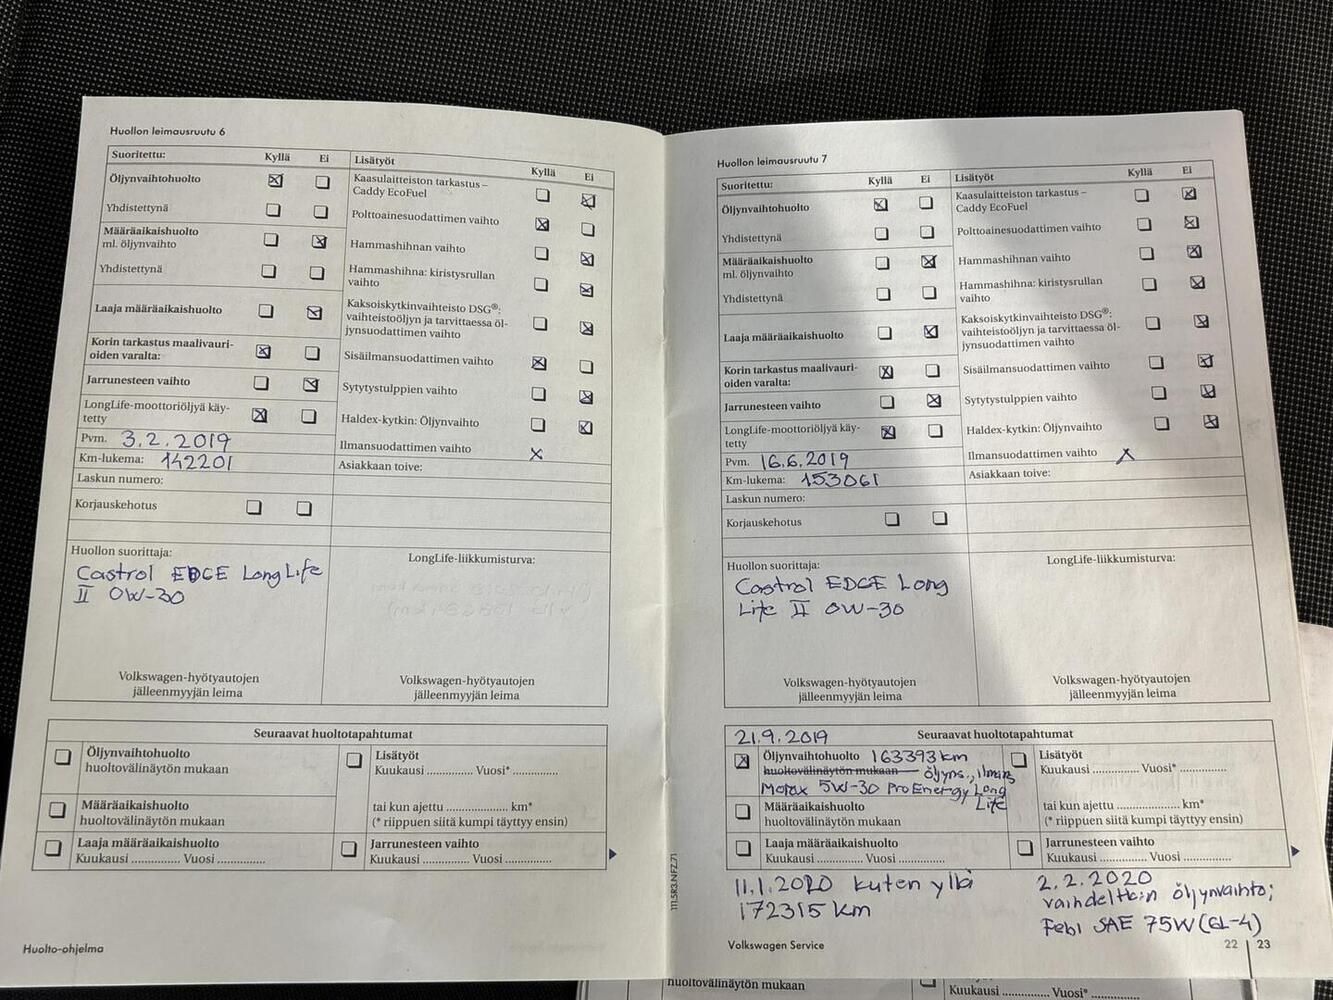 Huollon leimausruutu 6
Suoritettu: Kyllä Ei
Öljynvaihtohuolto
Yhdistettynä
Määräaikaishuolto
ml. öljynvaihto
Yhdistettynä
Laaja määräaikaishuolto
Korin tarkastus maalivauri-
oiden varalta:
Jarrunesteen vaihto
LongLife-moottoriöljyä käy-
tetty
Pvm. 3.2.2019
Km-lukema: 142201
Laskun numero:
Korjauskehotus
Lisätyöt Kyllä Ei
Kaasulaitteiston tarkastus –
Caddy EcoFuel
Polttoainesuodattimen vaihto
Hammashihnan vaihto
Hammashihna: kiristysrullan
vaihto
Kaksoiskytkinvaihteisto DSG®:
vaihteistoöljyn ja tarvittaessa öl-
jynsuodattimen vaihto
Sisäilmansuodattimen vaihto
Sytytystulppien vaihto
Haldex-kytkin: Öljynvaihto
Ilmansuodattimen vaihto X
Asiakkaan toive:
Huollon suorittaja:
Castrol EDGE LongLife
II 0W-30
Volkswagen-hyötyautojen
jälleenmyyjän leima
LongLife-liikkumisturva:
Volkswagen-hyötyautojen
jälleenmyyjän leima
Seuraavat huoltotapahtumat
Öljynvaihtohuolto
huoltovälinäytön mukaan
Määräaikaishuolto
huoltovälinäytön mukaan
Laaja määräaikaishuolto
Kuukausi .............. Vuosi ..............
Lisätyöt
Kuukausi .............. Vuosi* ..............
tai kun ajettu .................. km*
(* riippuen siitä kumpi täyttyy ensin)
Jarrunesteen vaihto
Kuukausi .............. Vuosi ..............
Huolto-ohjelma
Huollon leimausruutu 7
Suoritettu: Kyllä Ei
Öljynvaihtohuolto
Yhdistettynä
Määräaikaishuolto
ml. öljynvaihto
Yhdistettynä
Laaja määräaikaishuolto
Korin tarkastus maalivauri-
oiden varalta:
Jarrunesteen vaihto
LongLife-moottoriöljyä käy-
tetty
Pvm. 16.6.2019
Km-lukema: 153061
Laskun numero:
Korjauskehotus
Lisätyöt Kyllä Ei
Kaasulaitteiston tarkastus –
Caddy EcoFuel
Polttoainesuodattimen vaihto
Hammashihnan vaihto
Hammashihna: kiristysrullan
vaihto
Kaksoiskytkinvaihteisto DSG®:
vaihteistoöljyn ja tarvittaessa öl-
jynsuodattimen vaihto
Sisäilmansuodattimen vaihto
Sytytystulppien vaihto
Haldex-kytkin: Öljynvaihto
Ilmansuodattimen vaihto X
Asiakkaan toive:
Huollon suorittaja:
Castrol EDGE Long
Life II 0W-30
Volkswagen-hyötyautojen
jälleenmyyjän leima
LongLife-liikkumisturva:
Volkswagen-hyötyautojen
jälleenmyyjän leima
21.9.2019 Seuraavat huoltotapahtumat
Öljynvaihtohuolto 163393 km
huoltovälinäytön mukaan öljyns., ilmans
Motax 5W-30 ProEnergy Long
Life
Määräaikaishuolto
huoltovälinäytön mukaan
Laaja määräaikaishuolto
Kuukausi .............. Vuosi ..............
Lisätyöt
Kuukausi .............. Vuosi* ..............
tai kun ajettu .................. km*
(* riippuen siitä kumpi täyttyy ensin)
Jarrunesteen vaihto
Kuukausi .............. Vuosi ..............
11.1.2020 kuten yllä
172315 km
2.2.2020
vaihdelt:n öljynvaihto;
Febi SAE 75W (GL-4)
Volkswagen Service
22 | 23
111.5R3.NFZ.71
huoltovälinäytön mukaan
Kuukausi .............. Vuosi* ..............